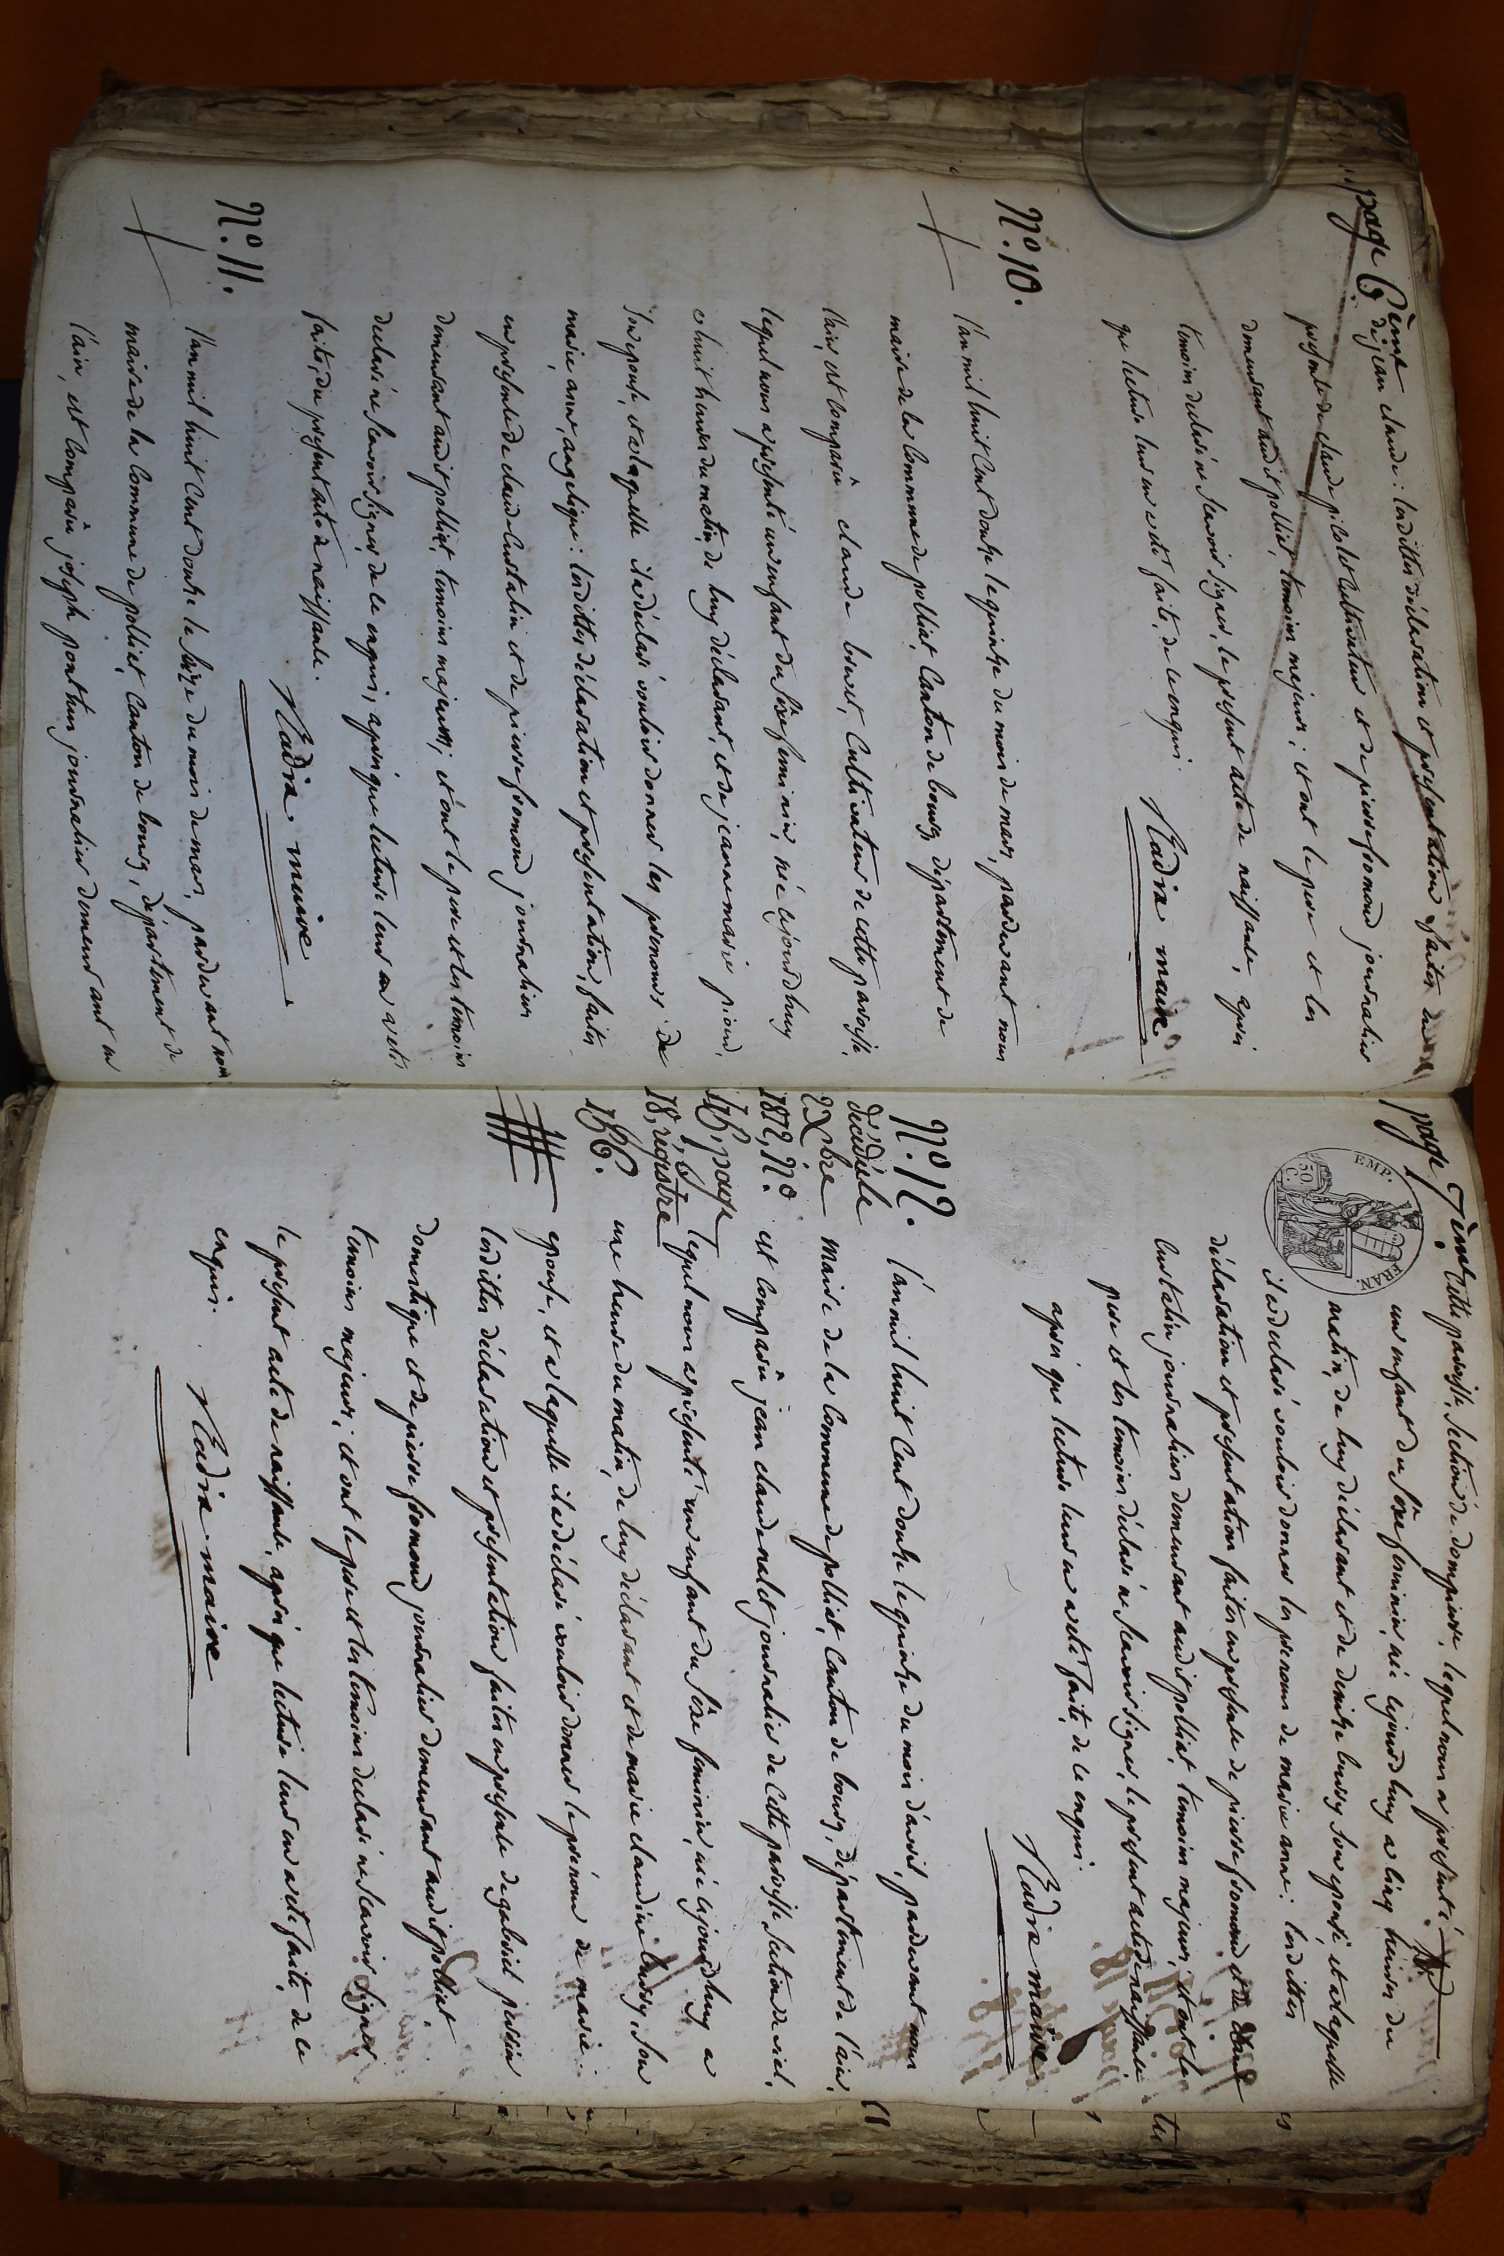 page 6ème
de jean claude : lesdittes déclaration et presentation faites en
presence de claude pilolet Cultivateur et de pierre fromond journalier
demeurant audit polliat, temoins majeurs ; et ont le pere et les
temoins déclaré ne sçavoir signer, le present acte de naissance, après
que lecture leur en a été faite, de ce enquis.
Radix maire
N.º 10.
l'an mil huit Cent douze le quinze du mois de mars, pardevant nous
maire de la Commune de polliat, Canton de bourg, département de
l'ain, est Comparû claude bouvet, Cultivateur de cette paroisse,
lequel nous a presenté un enfant du sexe feminin, née cejourdhuy
à huit heures du matin, de luy déclarant, et de jeanne marie piond,
son epouse, et a laquelle il a déclaré vouloir donner les prenoms de
marie, anne, angelique : lesdittes déclaration et presentation, faites
en presence de claude Curtalin et de pierre fromond journaliers
demeurant audit polliat, temoins majeurs ; et ont le pere et les temoins
déclaré ne sçavoir signer, de ce enquis, après que lecture leur en a été
faite, du present acte de naissance.
Radix maire
N.º 11.
l'an mil huit Cent douze le seize du mois de mars, pardevant nous
maire de la Commune de polliat, Canton de bourg, département de
l'ain, est Comparû joseph ponthus journalier demeurant en
page 7ème
Cette paroisse, section de dompierre, lequel nous a presenté
un enfant du sexe feminin, née cejourd'huy a Cinq heures du
matin, de luy déclarant et de denize bussy son epouse, et a laquelle
il a déclaré vouloir donner les prenoms de marie anne : lesdittes
déclaration et presentation faites en presence de pierre fromond et de claude
Curtalin journaliers demeurant audit polliat, temoins majeurs ; et ont le
pere et les temoins déclaré ne sçavoir signer, le present acte de naissance
après que lecture leur en a été faite, de ce enquis.
Radix maire
EMP. FRAN.
50 C.
N.º 12.
décédée le
2 Xbre
1812, N.º
46, page
18, registre
166.
l'an mil huit Cent douze le quinze du mois d'avril, pardevant nous
maire de la Commune de polliat, Canton de bourg, département de l'ain,
est Comparû jean claude nalet journalier de Cette paroisse section de viel,
lequel nous a presenté un enfant du sexe feminin, née cejourdhuy a
une heure du matin, de luy déclarant et de marie claudine bussy, son
epouse, et a laquelle il a déclaré vouloir donner le prénom de marie :
lesdittes déclaration et presentation faites en presence de gabriel perdrix
domestique et de pierre fromond journalier demeurant audit polliat,
temoins majeurs ; et ont le pere et les temoins déclaré ne sçavoir signer
le present acte de naissance, après que lecture leur en a été faite, de ce
enquis.
Radix maire